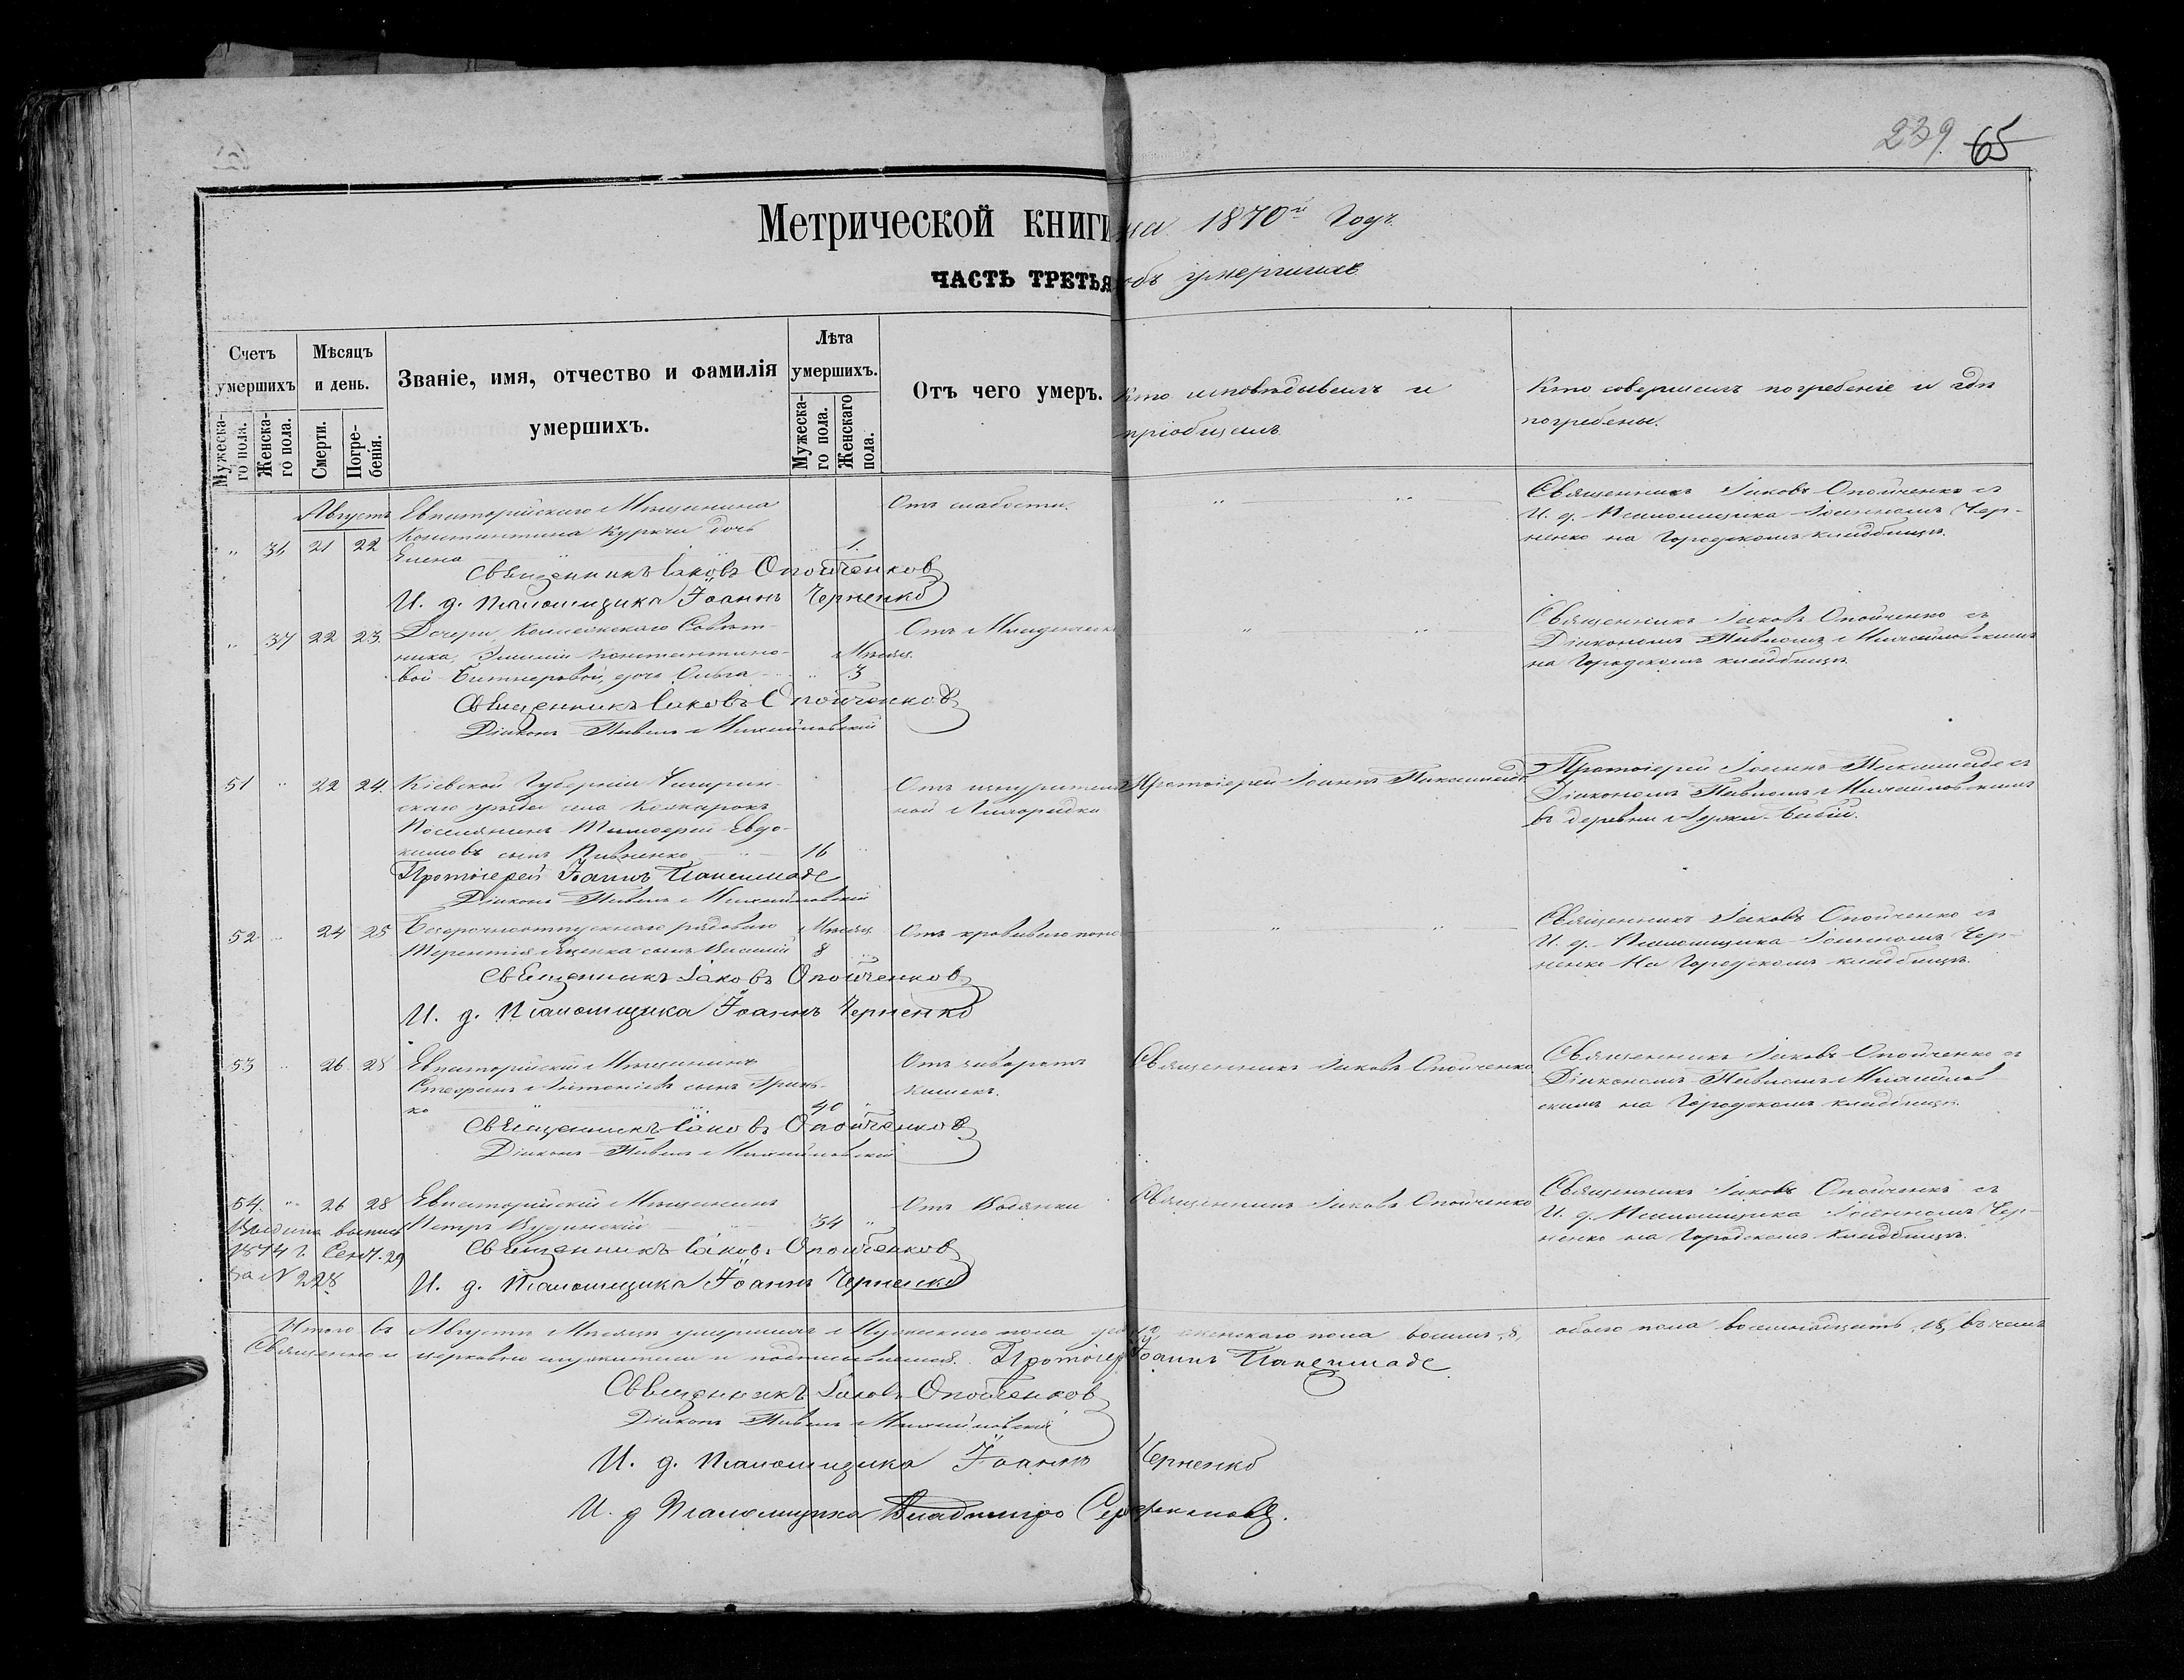 239. 65
Метрической книги на 1870й Годъ.
ЧАСТЬ ТРЕТЬЯ объ умершихъ
Счетъ умершихъ
Мужескаго пола.
Женскаго пола.
Мѣсяцъ и день.
Смерти.
Погребенія.
Званіе, имя, отчество и фамилія умершихъ.
Лѣта умершихъ.
Мужескаго пола.
Женскаго пола.
Отъ чего умеръ.
Кто исповѣдывалъ и
пріобщалъ.
Кто совершалъ погребеніе и гдѣ
погребены.
Августъ
" 36 21 22
Евпаторійскаго Мѣщанина
Константина Куркчи дочь
Елена 1.
Отъ слабости.
Священникъ Іаковъ Опойченко съ
И. д. Псаломщика Іоанномъ Чер-
ненко на Городскомъ кладбищѣ.
Священникъ Іаковъ Опойченков
И. д. Псаломщика Іоаннъ Черненко
" 37 22 23.
Дочери Коллежскаго Совѣт-
ника, Эмиліи Константино-
вой дочь Ольга
Мѣсяц.
3
Отъ Младенческ
Священникъ Іаковъ Опойченко съ
Діакономъ Павломъ Михайловскимъ
на Городскомъ кладбищѣ.
Священникъ Іаковъ Опойченков
Діаконъ Павелъ Михайловскій
51 " 22 24.
Кіевской Губерніи Чигирин-
скаго уѣзда села
Поселянинъ Тимофей Евдо-
кимовъ сынъ Пивненко 16 "
Отъ изнурительной
ной Лихорадки
Протоіерей Іоаннъ
Протоіерей Іоаннъ съ
Діакономъ Павломъ Михайловскимъ
въ деревни Аджи-Байчи.
Протоіерей Іоаннъ
Діаконъ Павелъ Михайловскій
52 " 24 25
Безсрочноотпускнаго рядоваго
Терентія Яценка сынъ Василій
Мѣсяц.
8 "
Отъ кроваваго поно
Священникъ Іаковъ Опойченко съ
И. д. Псаломщика Іоанномъ Чер-
ненко на Городскомъ кладбищѣ.
Священникъ Іаковъ Опойченков
И. д. Псаломщика Іоаннъ Черненко
53 " 26 28
Евпаторійскій Мѣщанинъ
Стефанъ Антоніевъ сынъ Гриць-
ко 40 "
Отъ заворота
кишекъ.
Священникъ Іаковъ Опойченко
Священникъ Іаковъ Опойченко съ
Діакономъ Павломъ Михайлов-
скимъ на Городскомъ кладбищѣ.
Священникъ Іаковъ Опойченков
Діаконъ Павелъ Михайловскій
54. " 26 28
Евпаторійскій Мѣщанинъ
Петръ Будинскій 34 "
Отъ Водянки
Священникъ Іаковъ Опойченко
Священникъ Іаковъ Опойченко съ
И. д. Псаломщика Іоанномъ Чер-
ненко на Городскомъ Кладбищѣ.
Выдана выпись
1874 г. Сент. 29
за № 228
Священникъ Іаковъ Опойченков
И. д. Псаломщика Іоаннъ Черненко
Итого въ Августѣ Мѣсяцѣ умершихъ Мужескаго пола 10, женскаго пола восемь, 8, обоего пола восемнадцать, 18, въ чемъ
Священно и церковно служители и подписываемся. Протоіерей Іоаннъ
Священникъ Іаковъ Опойченков
Діаконъ Павелъ Михайловскій
И. д. Псаломщика Іоаннъ Черненко
И. д. Псаломщика Владиміръ